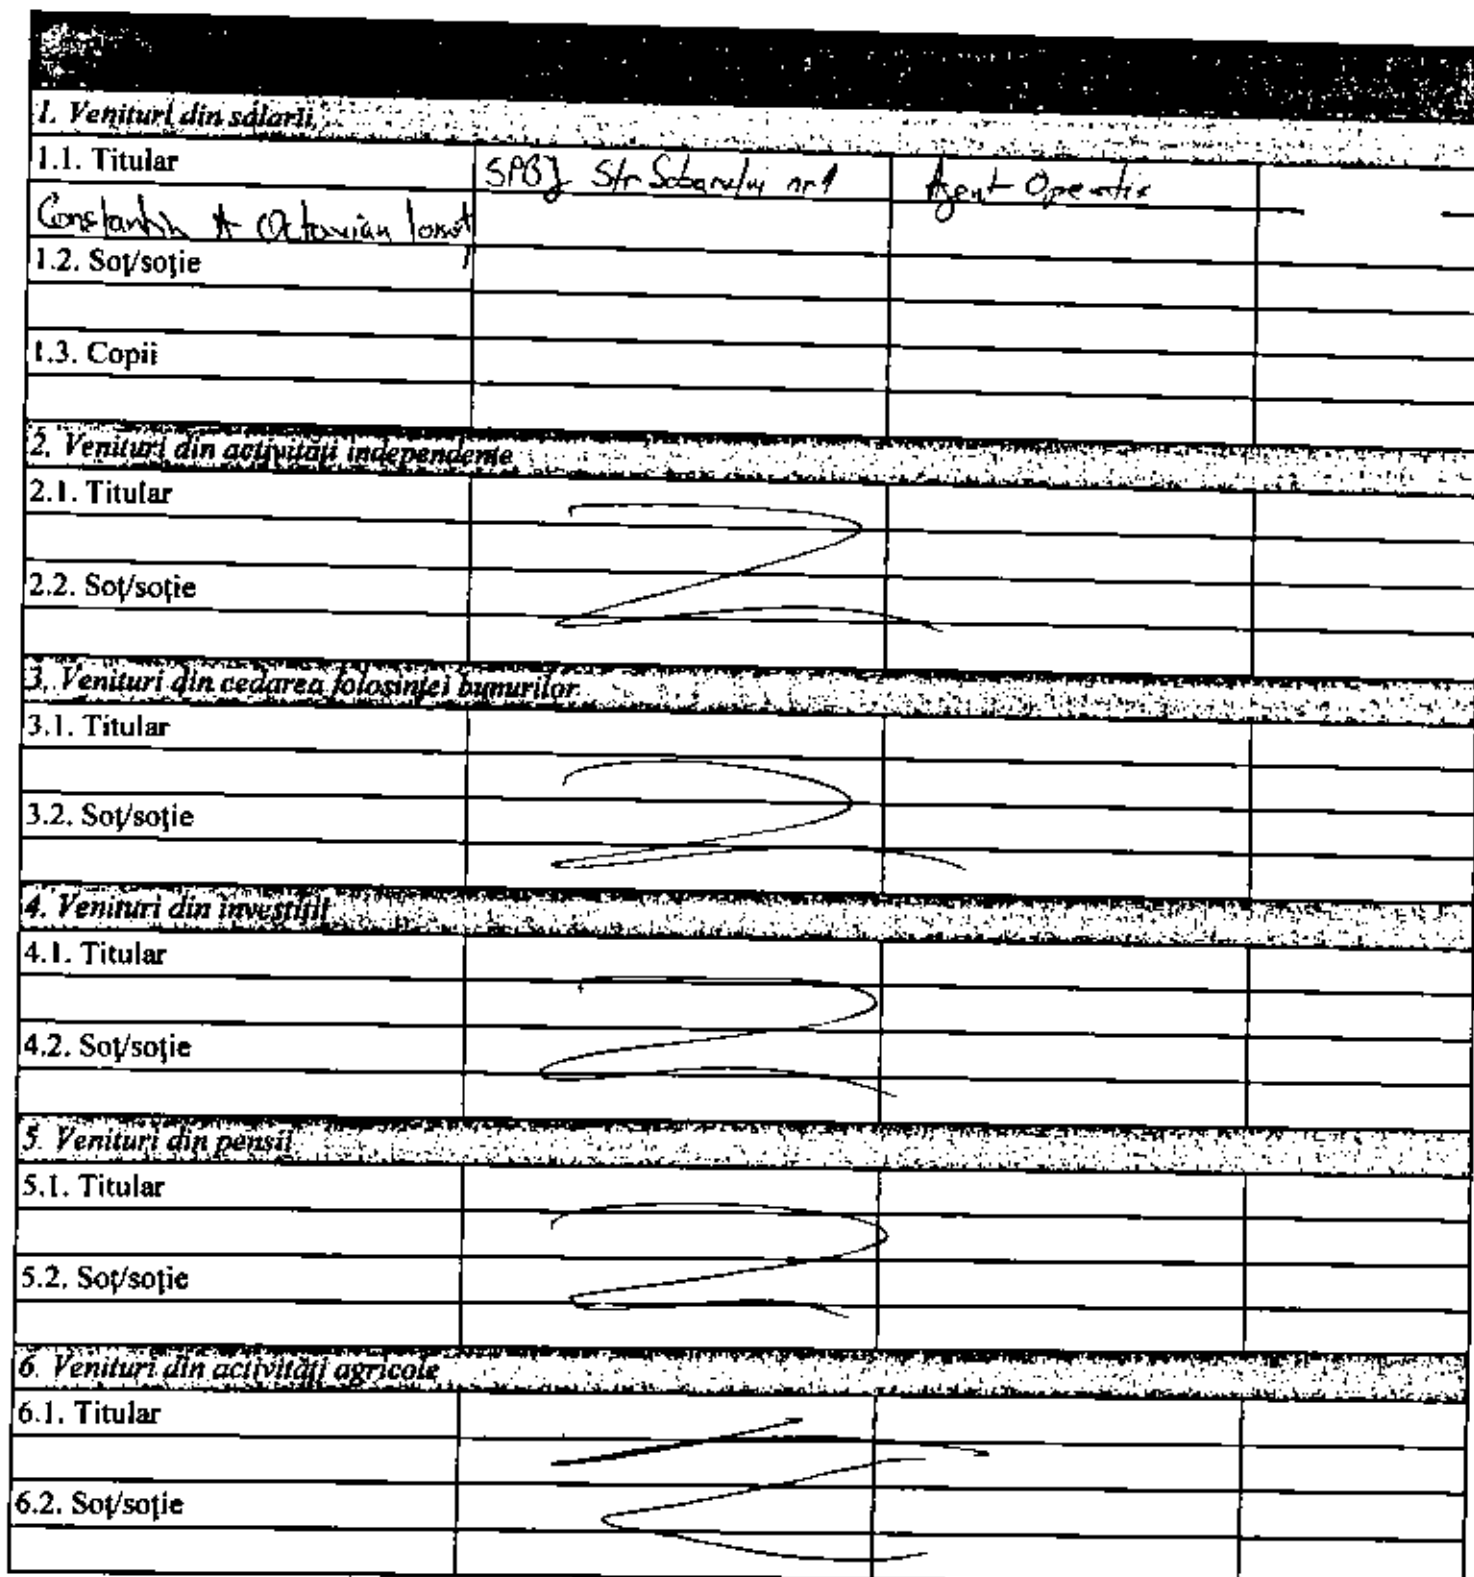 1. Venituri din salarii
1.1. Titular SPBJ Str Sobarului nr 1 Agent Operativ
Constantin A Octavian Ionuț
1.2. Soț/soție
1.3. Copii
2. Venituri din activități independente
2.1. Titular
2.2. Soț/soție
3. Venituri din cedarea folosinței bunurilor
3.1. Titular
3.2. Soț/soție
4. Venituri din investiții
4.1. Titular
4.2. Soț/soție
5. Venituri din pensii
5.1. Titular
5.2. Soț/soție
6. Venituri din activități agricole
6.1. Titular
6.2. Soț/soție